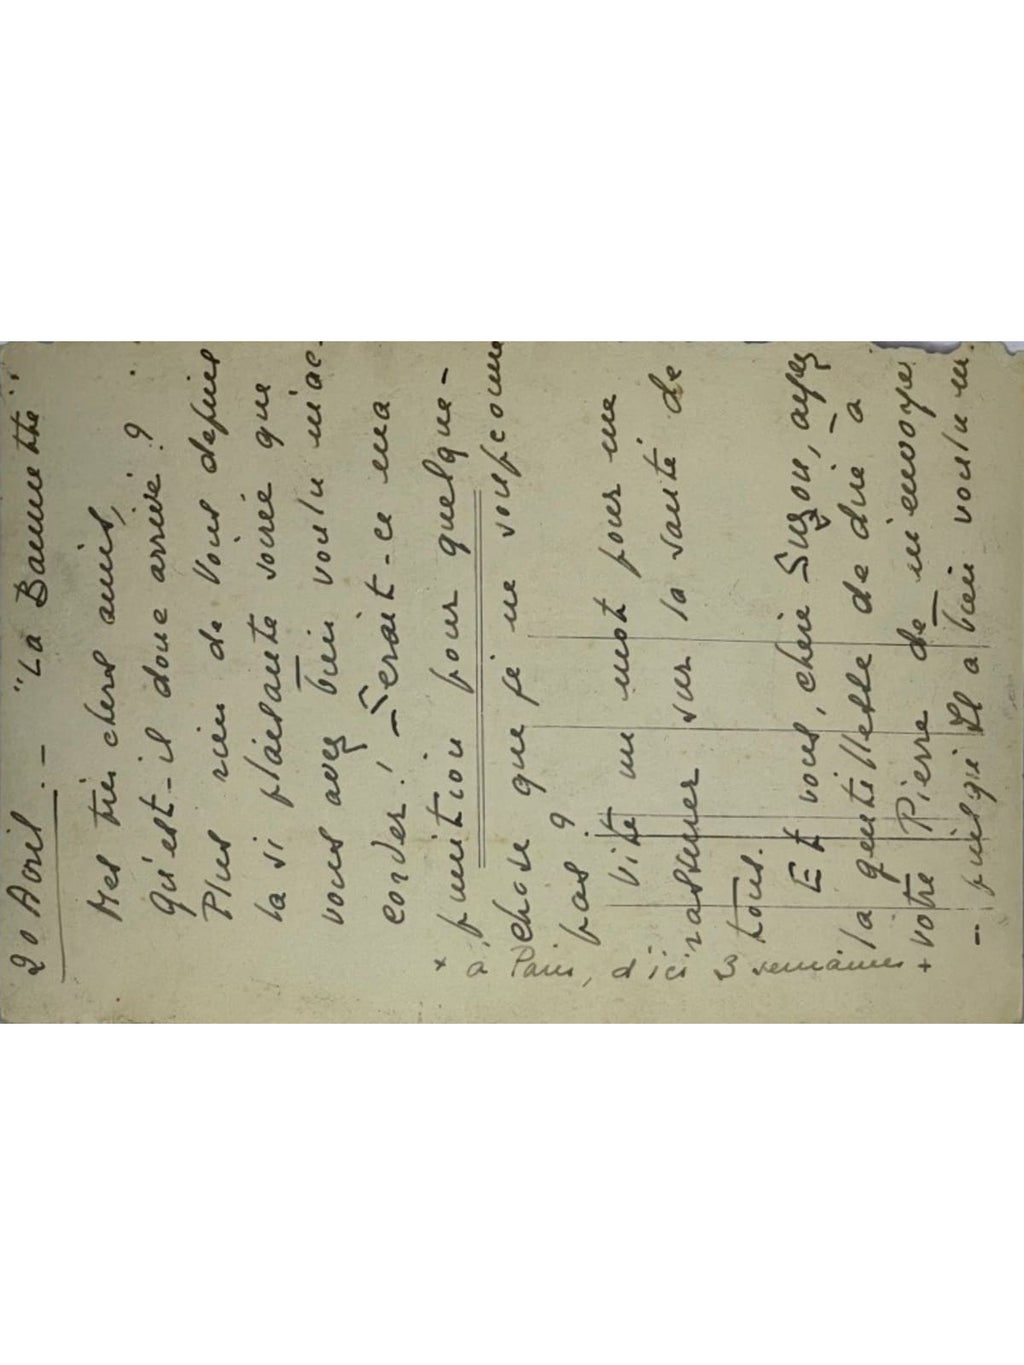 20 Avril. — "La Baumette".
Mes très chers amis,
Qu'est-il donc arrivé ?
Plus rien de vous depuis
la si plaisante soirée que
vous avez bien voulu m'ac-
corder ! — Serait-ce ma
punition pour quelque-
chose que je ne soupçonne
pas ?
Vite un mot pour me
rassurer sur la santé de
tous.
Et vous, chère Suzon, ayez
la gentillesse de dire à
votre Pierre de m'envoyer
— puisqu'il a bien voulu m'
+ à Paris, d'ici 3 semaines +